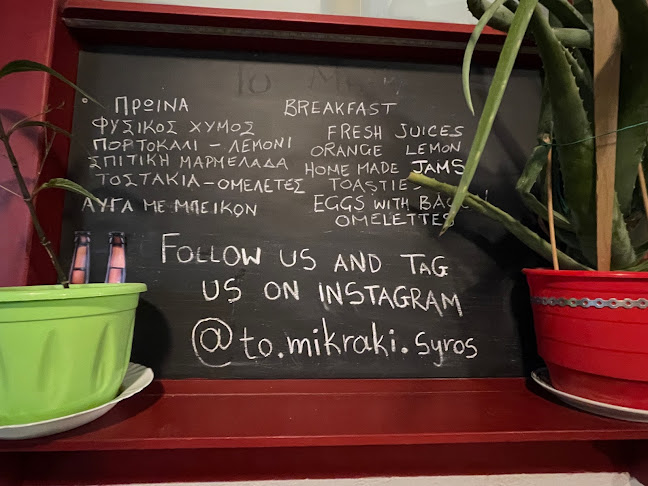 ΠΡΩΙΝΑ
ΦΥΣΙΚΟΣ ΧΥΜΟΣ
ΠΟΡΤΟΚΑΛΙ - ΛΕΜΟΝΙ
ΣΠΙΤΙΚΗ ΜΑΡΜΕΛΑΔΑ
ΤΟΣΤΑΚΙΑ - ΟΜΕΛΕΤΕΣ
ΑΥΓΑ ΜΕ ΜΠΕΙΚΟΝ
BREAKFAST
FRESH JUICES
ORANGE LEMON
HOME MADE JAMS
TOASTIES
EGGS WITH
OMELETTES
FOLLOW US AND TAG
US ON INSTAGRAM
@to.mikraki.syros